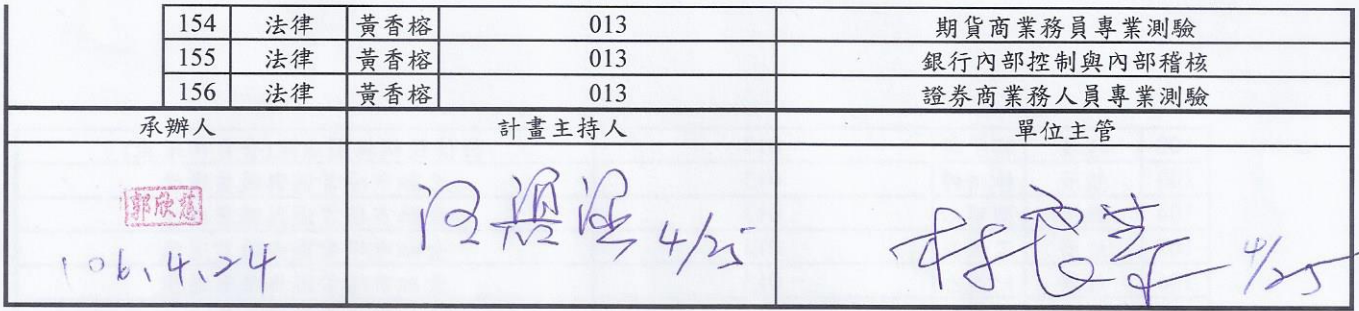 154 法律 黃香榕 013 期貨商業務員專業測驗
155 法律 黃香榕 013 銀行內部控制與內部稽核
156 法律 黃香榕 013 證券商業務人員專業測驗
承辦人 計畫主持人 單位主管
郭欣慈
106.4.24 4/25 4/25